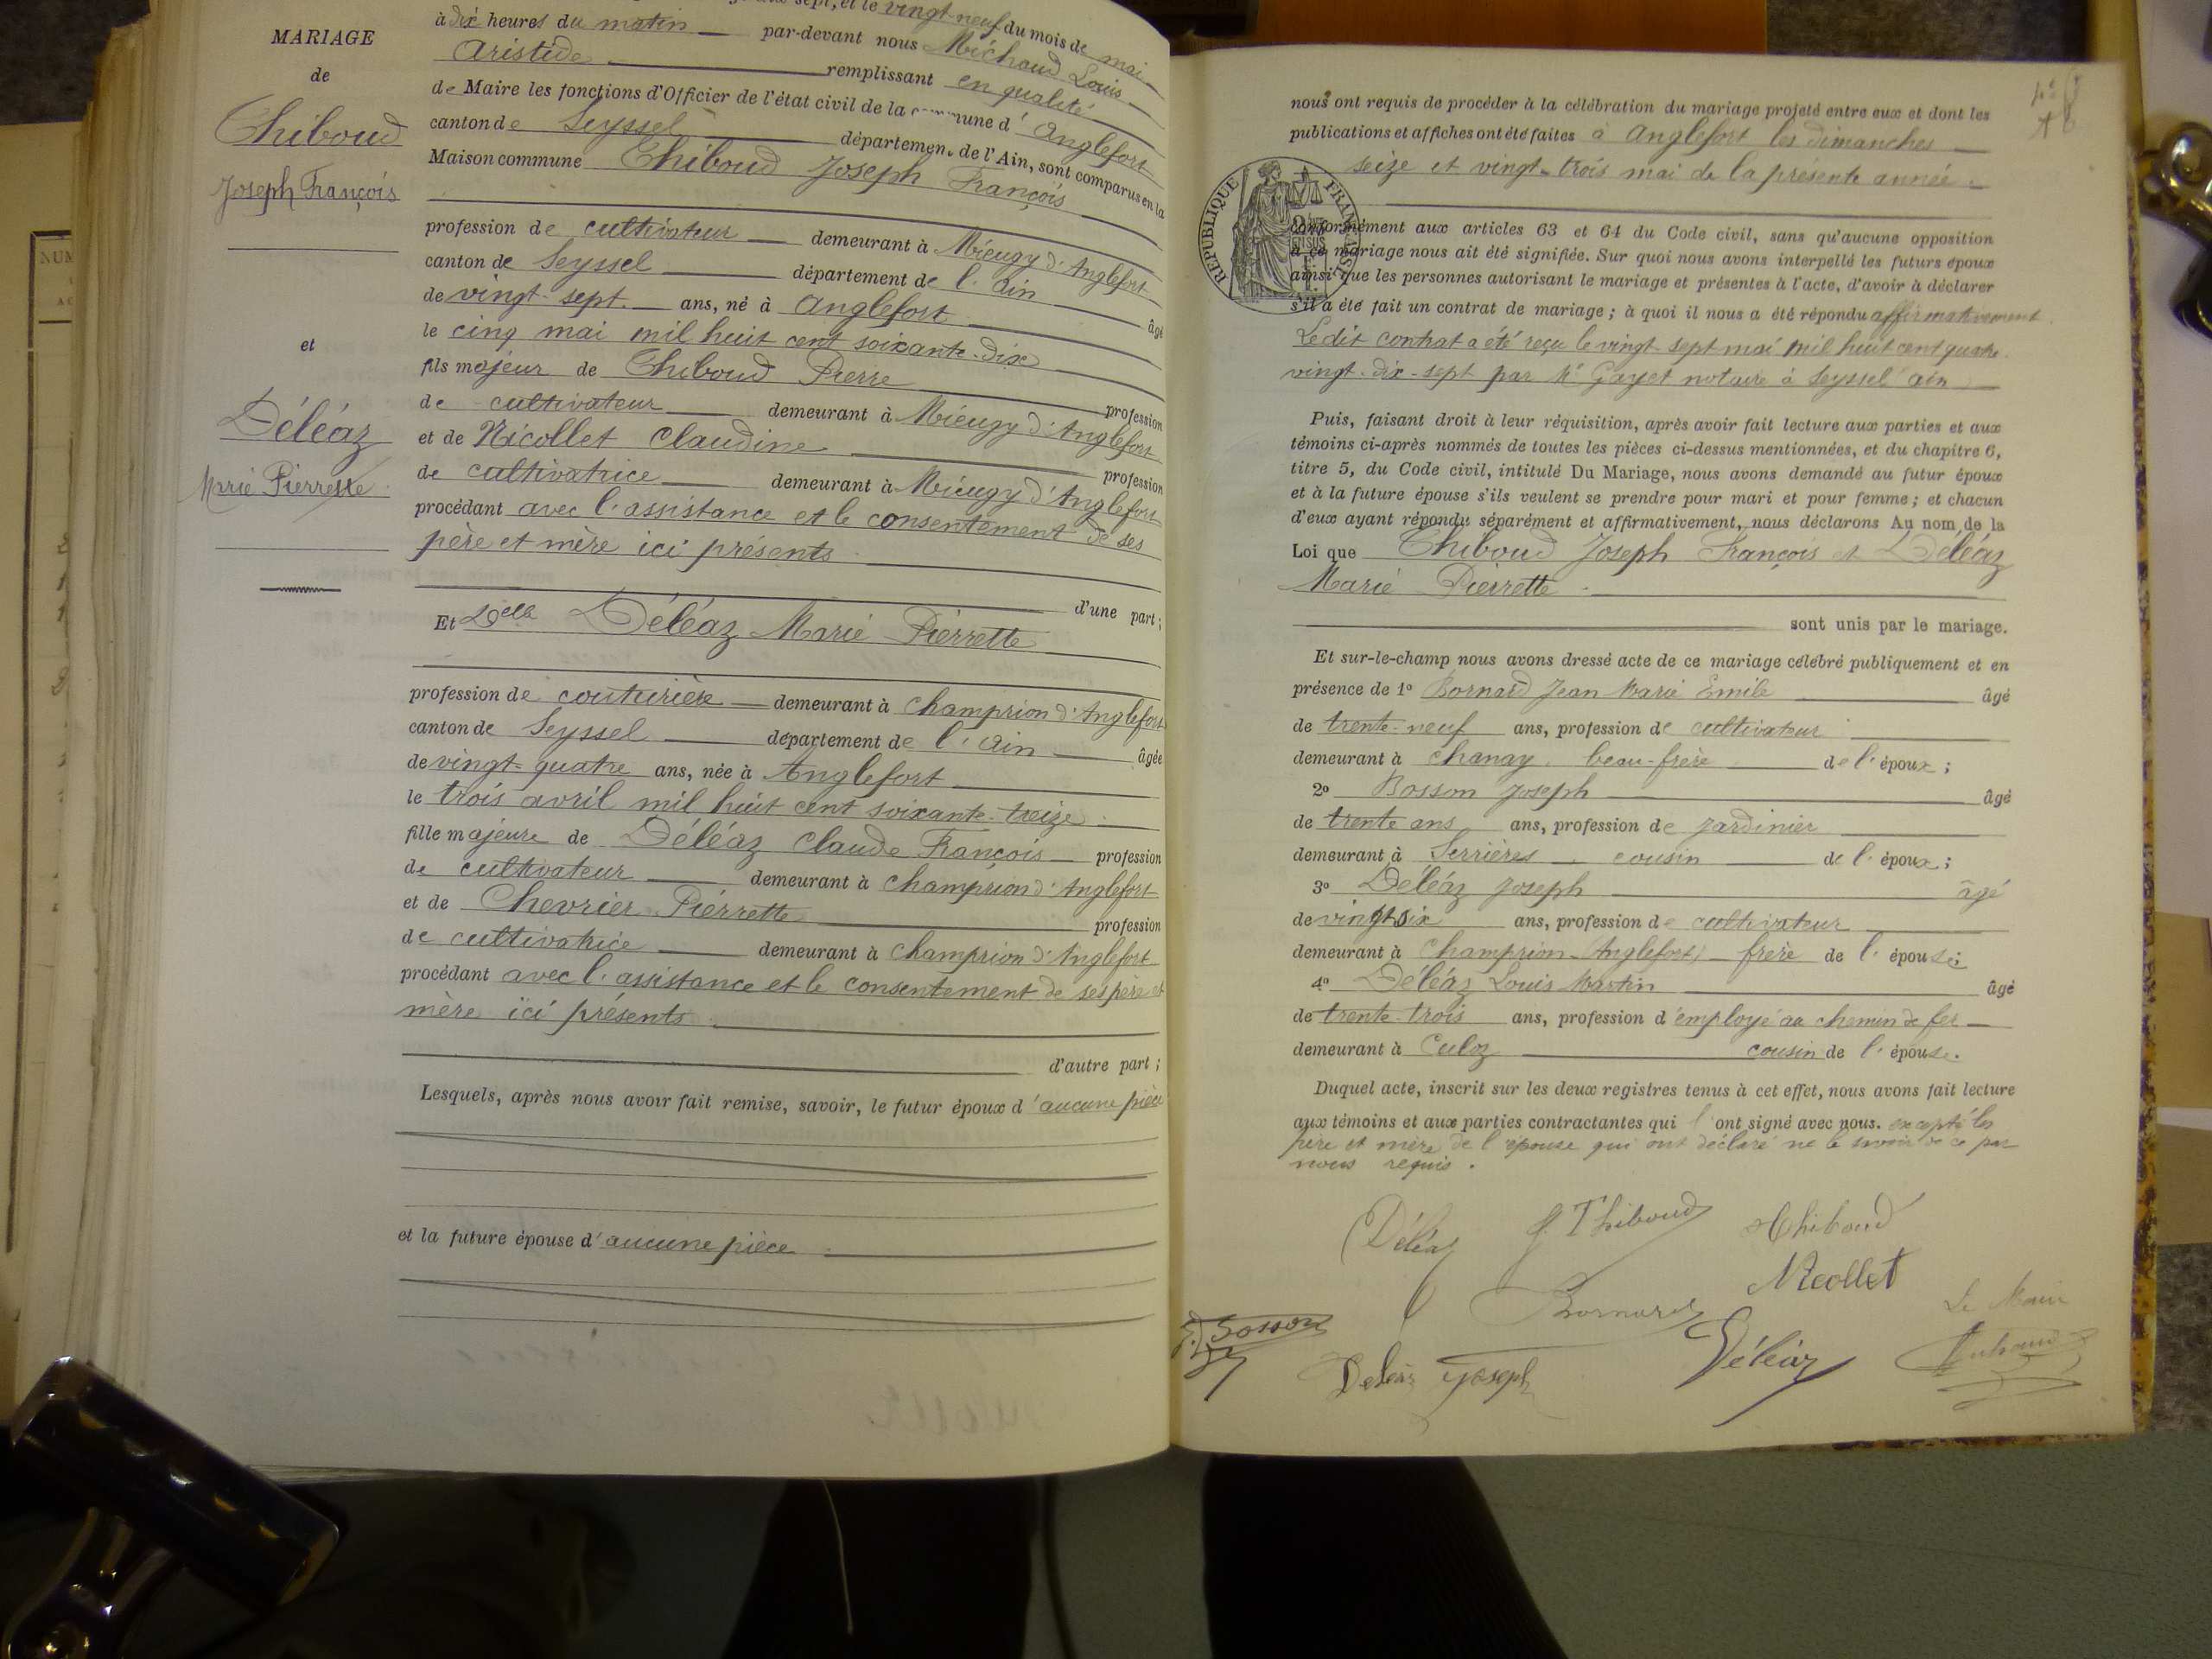 MARIAGE
de
Thiboud
Joseph François
et
Déléaz
Marie Pierrette
sept, et le vingt-neuf du mois de mai
à dix heures du matin par-devant nous Michaud Louis
Aristide remplissant en qualité
de Maire les fonctions d'Officier de l'état civil de la commune d'Anglefort
canton de Seyssel département de l'Ain, sont comparus en la
Maison commune Thiboud Joseph François
profession de cultivateur demeurant à Mieugy d'Anglefort
canton de Seyssel département de l'Ain âgé
de vingt-sept ans, né à Anglefort
le cinq mai mil huit cent soixante-dix
fils majeur de Thiboud Pierre profession
de cultivateur demeurant à Mieugy d'Anglefort
et de Nicollet Claudine profession
de cultivatrice demeurant à Mieugy d'Anglefort
procédant avec l'assistance et le consentement de ses
père et mère ici présents
d'une part;
Et Delle Déléaz Marie Pierrette
profession de couturière demeurant à Champrion d'Anglefort
canton de Seyssel département de l'Ain âgée
de vingt-quatre ans, née à Anglefort
le trois avril mil huit cent soixante-treize
fille majeure de Déléaz Claude François profession
de cultivateur demeurant à Champrion d'Anglefort
et de Chevrier Pierrette profession
de cultivatrice demeurant à Champrion d'Anglefort
procédant avec l'assistance et le consentement de ses père et
mère ici présents
d'autre part;
Lesquels, après nous avoir fait remise, savoir, le futur époux d'aucune pièce
et la future épouse d'aucune pièce
nous ont requis de procéder à la célébration du mariage projeté entre eux et dont les
publications et affiches ont été faites à Anglefort les dimanches
seize et vingt-trois mai de la présente année
RÉPUBLIQUE FRANÇAISE
conformément aux articles 63 et 64 du Code civil, sans qu'aucune opposition
à ce mariage nous ait été signifiée. Sur quoi nous avons interpellé les futurs époux
ainsi que les personnes autorisant le mariage et présentes à l'acte, d'avoir à déclarer
s'il a été fait un contrat de mariage; à quoi il nous a été répondu affirmativement
Ledit contrat a été reçu le vingt-sept mai mil huit cent quatre
vingt-dix-sept par Me Gayet notaire à Seyssel Ain
Puis, faisant droit à leur réquisition, après avoir fait lecture aux parties et aux
témoins ci-après nommés de toutes les pièces ci-dessus mentionnées, et du chapitre 6,
titre 5, du Code civil, intitulé Du Mariage, nous avons demandé au futur époux
et à la future épouse s'ils veulent se prendre pour mari et pour femme; et chacun
d'eux ayant répondu séparément et affirmativement, nous déclarons Au nom de la
Loi que Thiboud Joseph François et Déléaz
Marie Pierrette
sont unis par le mariage.
Et sur-le-champ nous avons dressé acte de ce mariage célébré publiquement et en
présence de 1º Bornard Jean Marie Emile âgé
de trente-neuf ans, profession de cultivateur
demeurant à Chanay beau-frère de l'époux;
2º Bosson Joseph âgé
de trente ans ans, profession de jardinier
demeurant à Serrières cousin de l'époux;
3º Déléaz Joseph âgé
de vingt six ans, profession de cultivateur
demeurant à Champrion-Anglefort frère de l'épouse;
4º Déléaz Louis Martin âgé
de trente-trois ans, profession d'employé au chemin de fer
demeurant à Culoz cousin de l'épouse.
Duquel acte, inscrit sur les deux registres tenus à cet effet, nous avons fait lecture
aux témoins et aux parties contractantes qui l'ont signé avec nous. excepté les
père et mère de l'épouse qui ont déclaré ne le savoir de ce par
nous requis.
Déléaz J. Thiboud Thiboud
Bornard Nicollet
Le Maire
J. Bosson
Joseph Déléaz